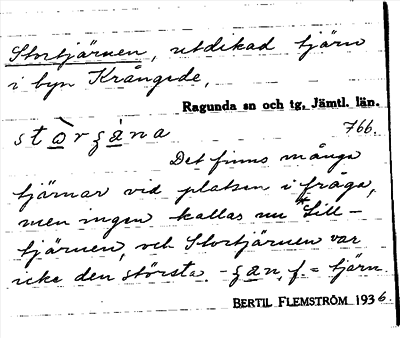 Stortjärnen, utdikad tjärn
i byn Krångede,
Ragunda sn och tg, Jämtl. län.
766.
Det finns många
tjärnar vid platsen i fråga,
men ingen kallas nu "Lill-
tjärnen, och Stortjärnen var
icke den största. -ʒan, f. = tjärn.
BERTIL FLEMSTRÖM 1936.